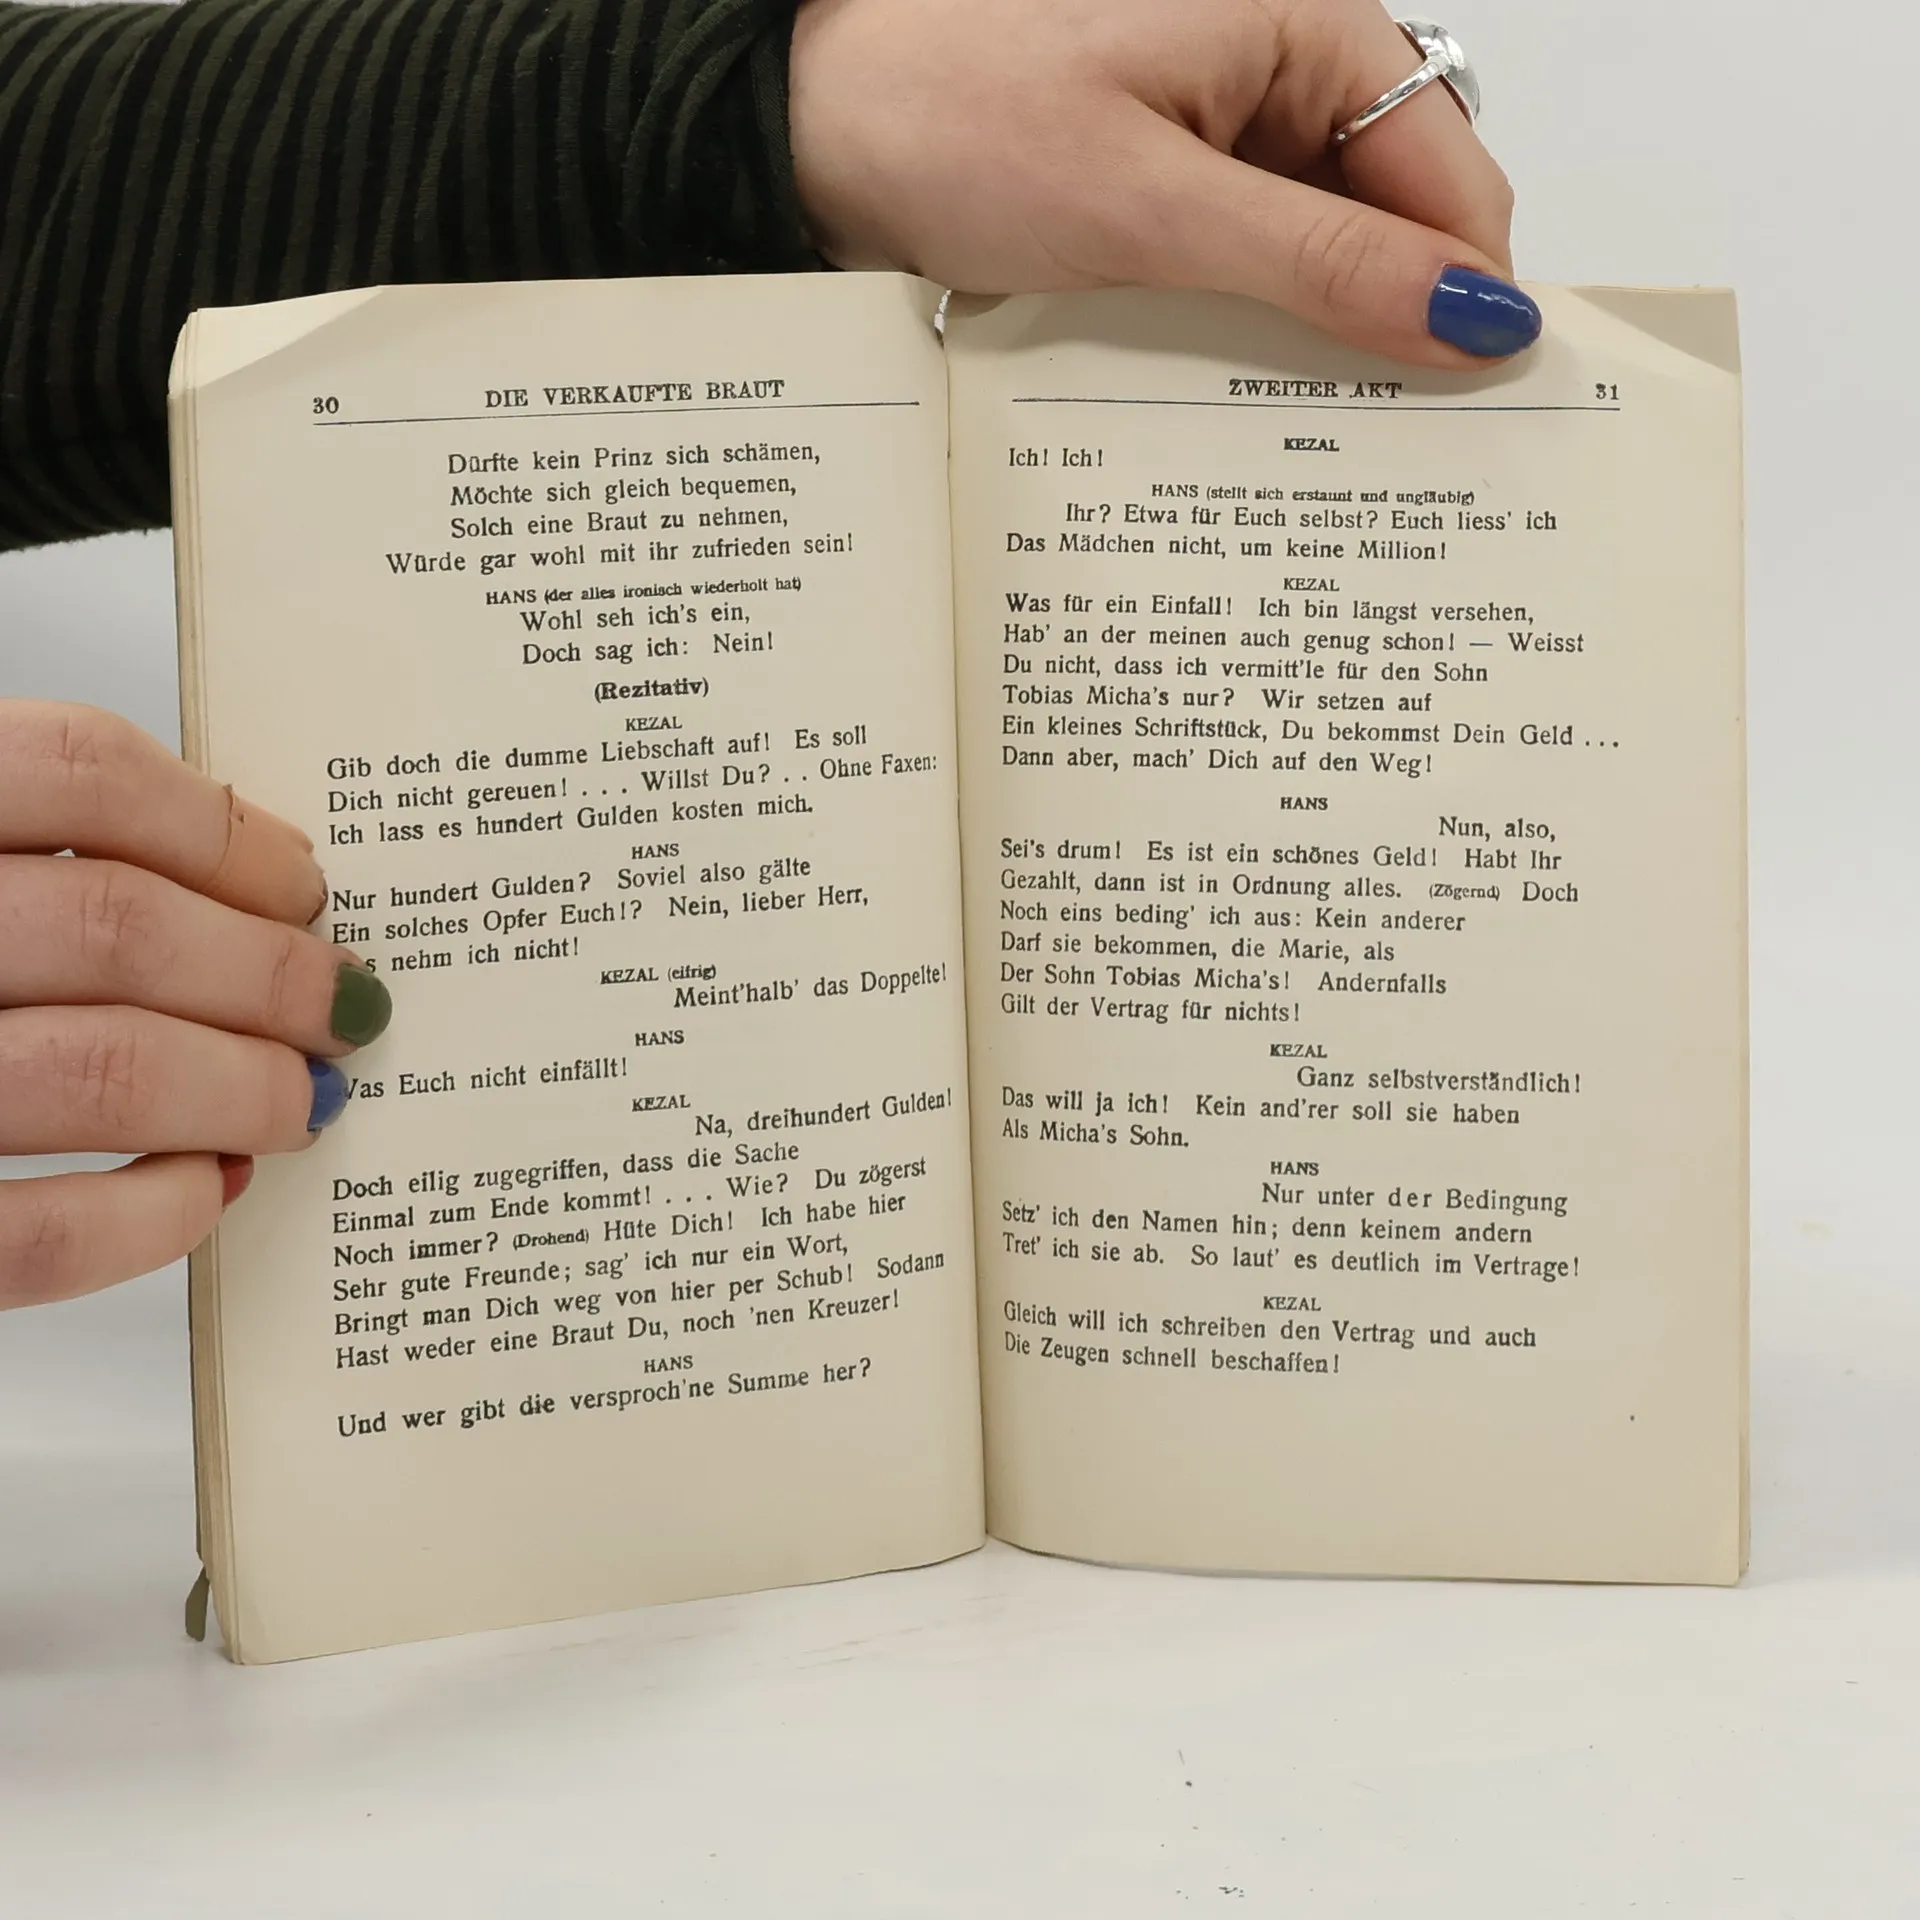 30 DIE VERKAUFTE BRAUT
Dürfte kein Prinz sich schämen,
Möchte sich gleich bequemen,
Solch eine Braut zu nehmen,
Würde gar wohl mit ihr zufrieden sein!
HANS (der alles ironisch wiederholt hat)
Wohl seh ich's ein,
Doch sag ich: Nein!
(Rezitativ)
KEZAL
Gib doch die dumme Liebschaft auf! Es soll
Dich nicht gereuen! . . . Willst Du? . . Ohne Faxen:
Ich lass es hundert Gulden kosten mich.
HANS
Nur hundert Gulden? Soviel also gälte
Ein solches Opfer Euch!? Nein, lieber Herr,
s nehm ich nicht!
KEZAL (eifrig)
Meint'halb' das Doppelte!
HANS
Was Euch nicht einfällt!
KEZAL
Na, dreihundert Gulden!
Doch eilig zugegriffen, dass die Sache
Einmal zum Ende kommt! . . . Wie? Du zögerst
Noch immer? (Drohend) Hüte Dich! Ich habe hier
Sehr gute Freunde; sag' ich nur ein Wort,
Bringt man Dich weg von hier per Schub! Sodann
Hast weder eine Braut Du, noch 'nen Kreuzer!
HANS
Und wer gibt die versproch'ne Summe her?
ZWEITER AKT 31
KEZAL
Ich! Ich!
HANS (stellt sich erstaunt und ungläubig)
Ihr? Etwa für Euch selbst? Euch liess' ich
Das Mädchen nicht, um keine Million!
KEZAL
Was für ein Einfall! Ich bin längst versehen,
Hab' an der meinen auch genug schon! — Weisst
Du nicht, dass ich vermitt'le für den Sohn
Tobias Micha's nur? Wir setzen auf
Ein kleines Schriftstück, Du bekommst Dein Geld ...
Dann aber, mach' Dich auf den Weg!
HANS
Nun, also,
Sei's drum! Es ist ein schönes Geld! Habt Ihr
Gezahlt, dann ist in Ordnung alles. (Zögernd) Doch
Noch eins beding' ich aus: Kein anderer
Darf sie bekommen, die Marie, als
Der Sohn Tobias Micha's! Andernfalls
Gilt der Vertrag für nichts!
KEZAL
Ganz selbstverständlich!
Das will ja ich! Kein and'rer soll sie haben
Als Micha's Sohn.
HANS
Nur unter der Bedingung
Setz' ich den Namen hin; denn keinem andern
Tret' ich sie ab. So laut' es deutlich im Vertrage!
KEZAL
Gleich will ich schreiben den Vertrag und auch
Die Zeugen schnell beschaffen!